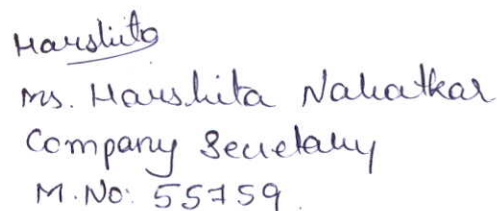 Harshita
Ms. Harshita Nahatkar
Company Secretary
M.No: 55759.